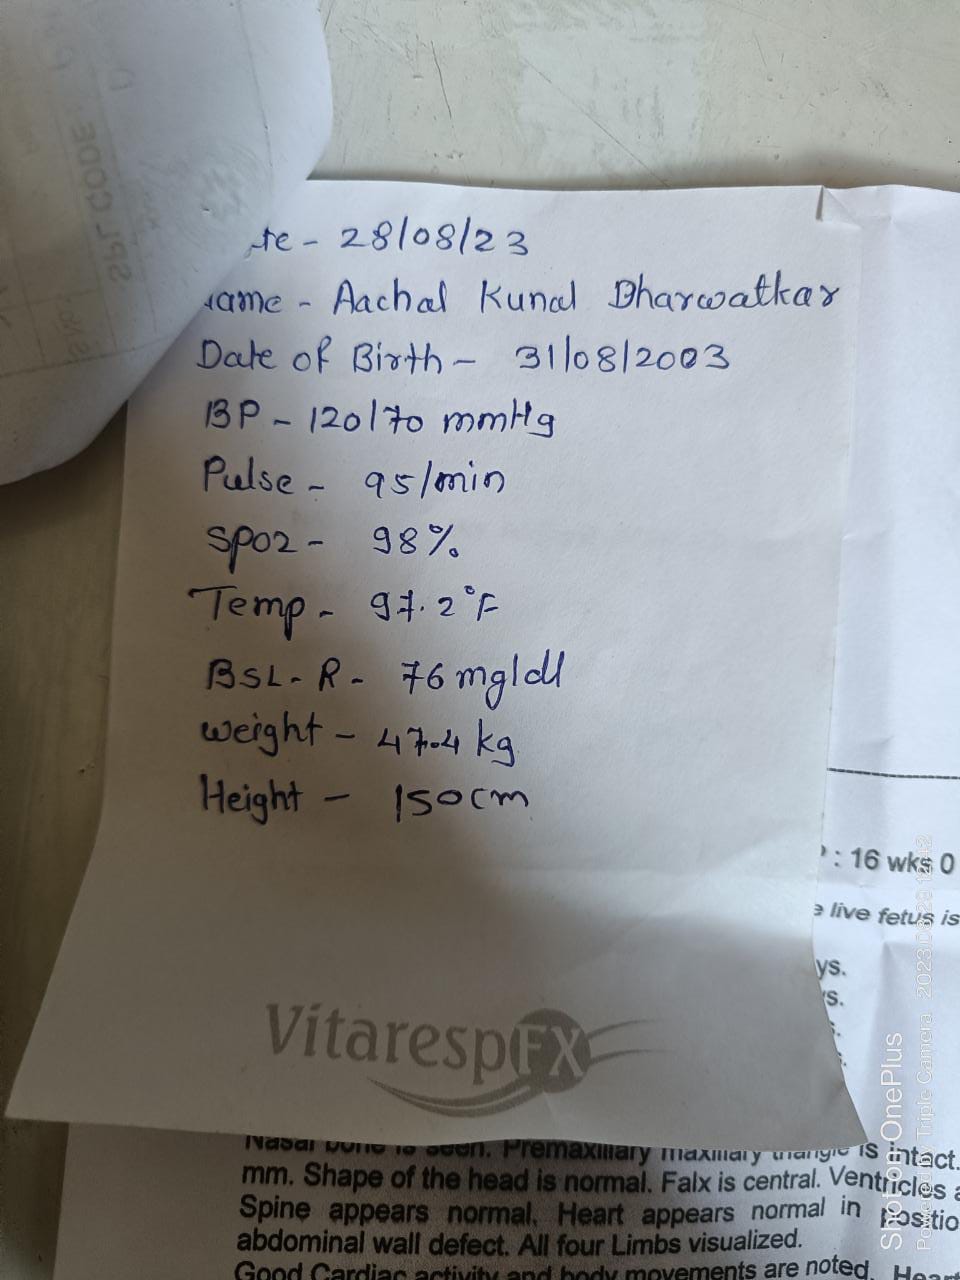 te - 28/08/23
ame - Aachal Kunal Dharwatkar
Date of Birth - 31/08/2003
BP - 120/70 mmHg
Pulse - 95/min
SpO2 - 98%
Temp - 97.2°F
BSL-R - 76 mg/dl
weight - 47.4 kg
Height - 150cm
: 16 wks 0
live fetus is
ys.
s.
VitarespFX
Nasal bone is seen. Premaxillary maxillary triangle is intact.
mm. Shape of the head is normal. Falx is central. Ventricles a
Spine appears normal. Heart appears normal in positio
abdominal wall defect. All four Limbs visualized.
Good Cardiac activity and body movements are noted. Hear
SPL CODE
Shot on OnePlus
Powered by Triple Camera